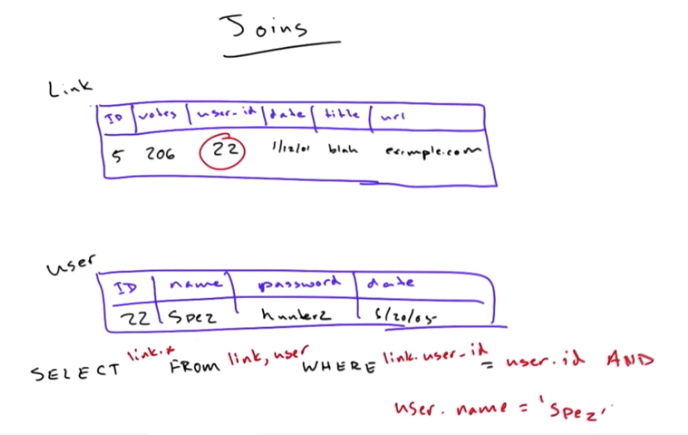 Joins
Link
ID votes user-id date title url
5 206 22 1/12/01 blah example.com
user
ID name password date
22 Spez hunter2 6/20/05
SELECT link.* FROM link, user WHERE link.user-id = user.id AND
user.name = 'Spez'